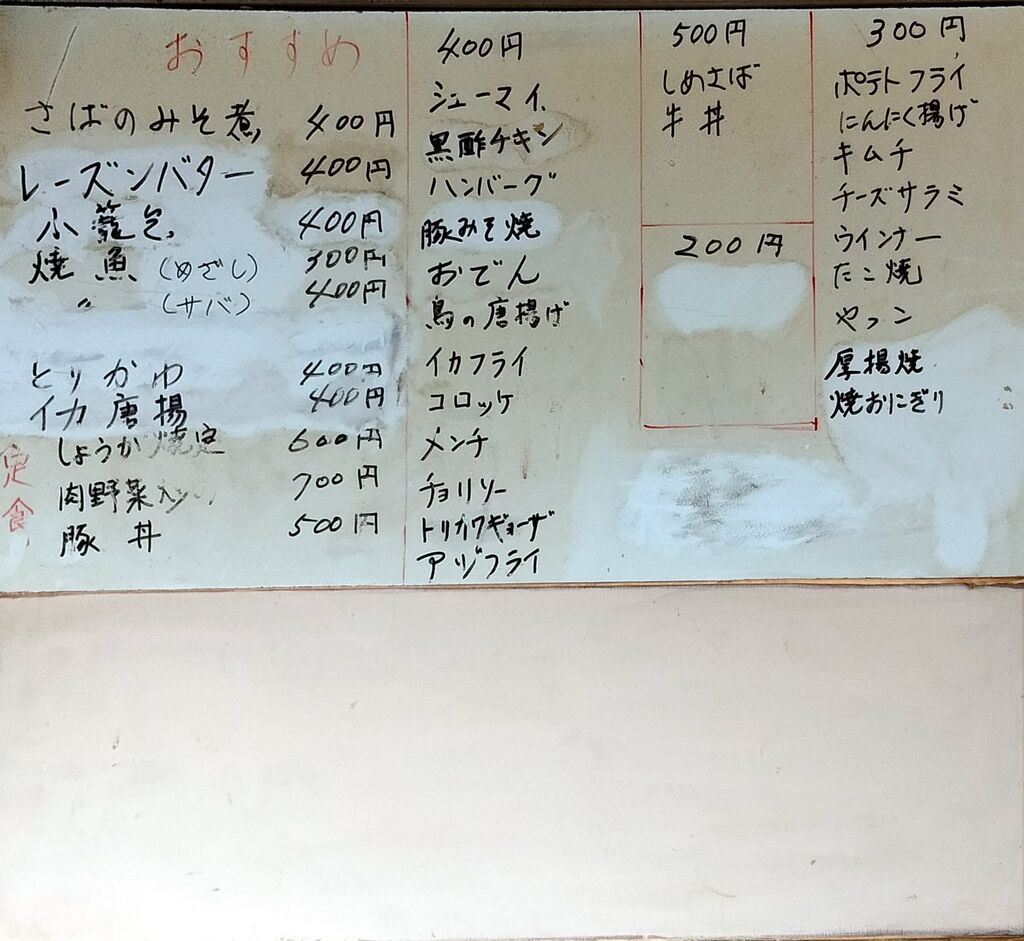 おすすめ
さばのみそ煮 400円
レーズンバター 400円
小籠包 400円
焼魚(めざし) 300円
〃(サバ) 400円
とりかゆ 400円
イカ唐揚 400円
定食
しょうが焼定 600円
肉野菜 700円
豚丼 500円
400円
シューマイ
黒酢チキン
ハンバーグ
豚みそ焼
おでん
鳥の唐揚げ
イカフライ
コロッケ
メンチ
チョリソー
トリカワギョーザ
アジフライ
500円
しめさば
牛丼
200円
300円
ポテトフライ
にんにく揚げ
キムチ
チーズサラミ
ウインナー
たこ焼
やっこ
厚揚焼
焼おにぎり